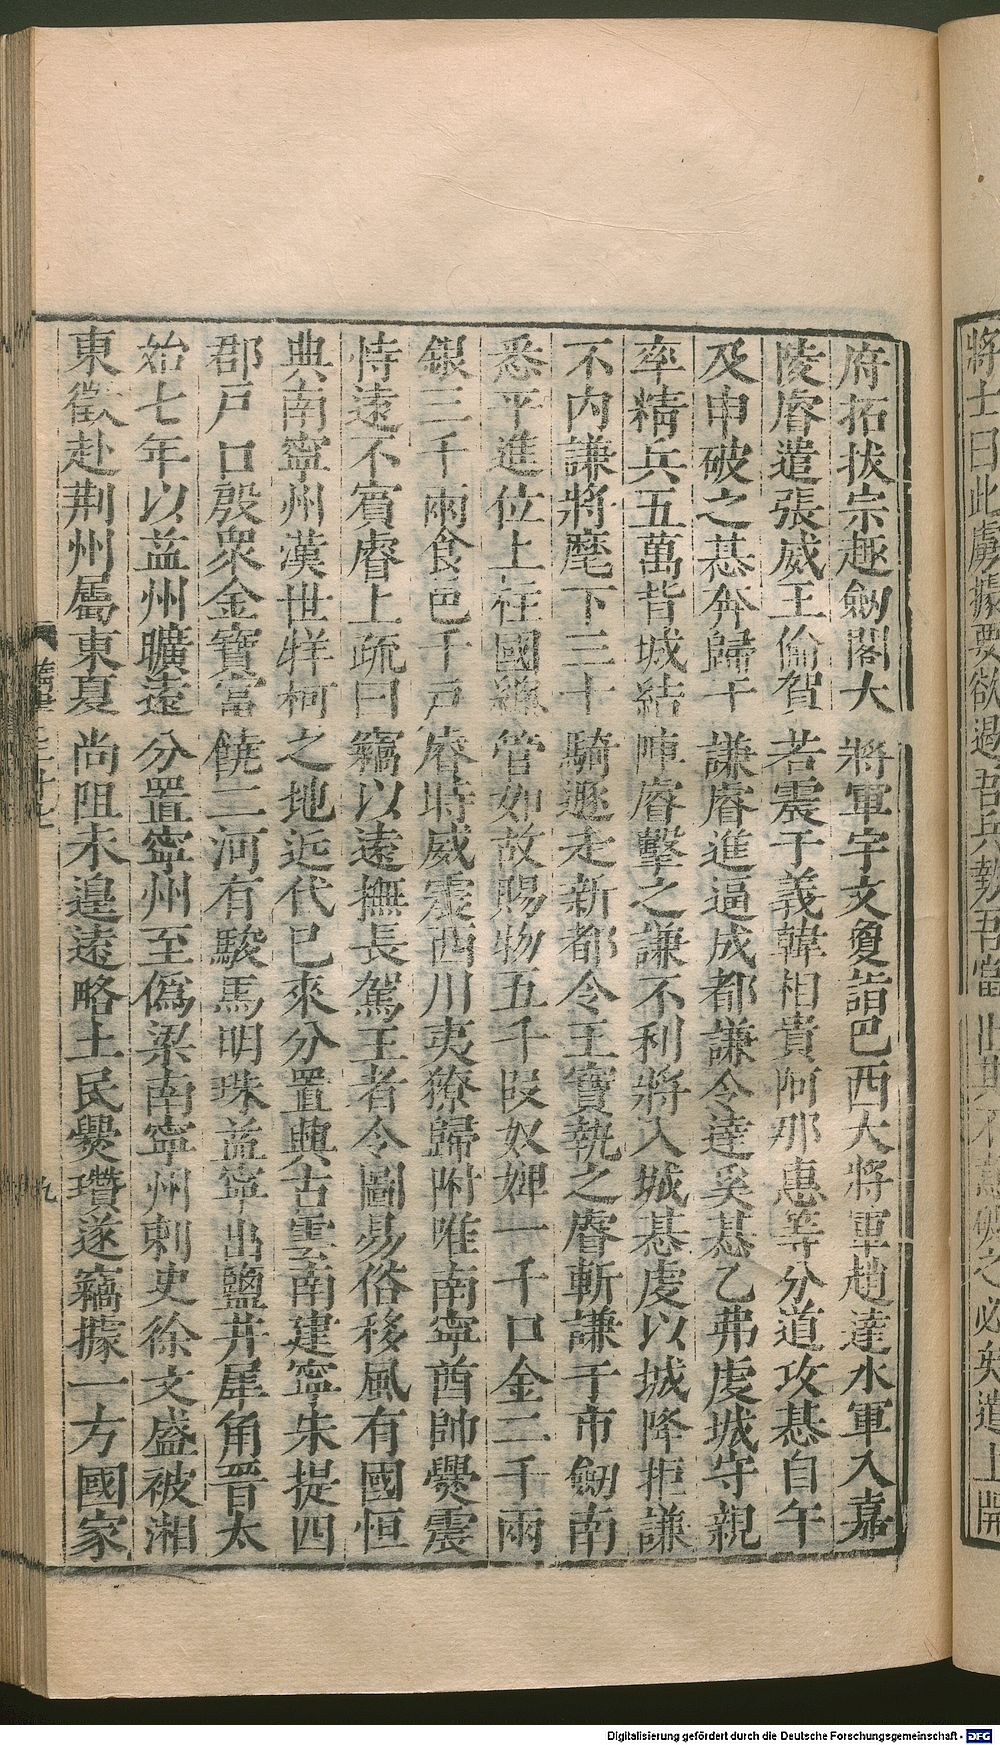 將士曰此虜據要欲遏吾兵勢吾當出其不意破之必矣遣上開
府拓拔宗趣劒閣大將軍宇文敻詣巴西大將軍趙達水軍入嘉
陵睿遣張威王倫賀若震于義韓相貴阿那惠等分道攻惎自午
及申破之惎奔歸于謙睿進逼成都謙令達奚惎乙弗虔城守親
率精兵五萬背城結陣睿擊之謙不利將入城惎虔以城降拒謙
不內謙將麾下三十騎遁走新都令王寶執之睿斬謙于市劒南
悉平進位上柱國總管如故賜物五千段奴婢一千口金二千兩
銀三千兩食邑千戶睿時威震西川夷獠歸附唯南寧酋帥爨震
恃遠不賓睿上疏曰竊以遠撫長駕王者令圖易俗移風有國恒
典南寧州漢世牂柯之地近代已來分置興古雲南建寧朱提四
郡戶口殷衆金寶富饒二河有駿馬明珠益寧出鹽井犀角晋太
始七年以益州曠遠分置寧州至偽梁南寧州刺史徐文盛被湘
東徵赴荆州屬東夏尚阻未遑遠略土民爨瓚遂竊據一方國家
九
Digitalisierung gefördert durch die Deutsche Forschungsgemeinschaft - DFG